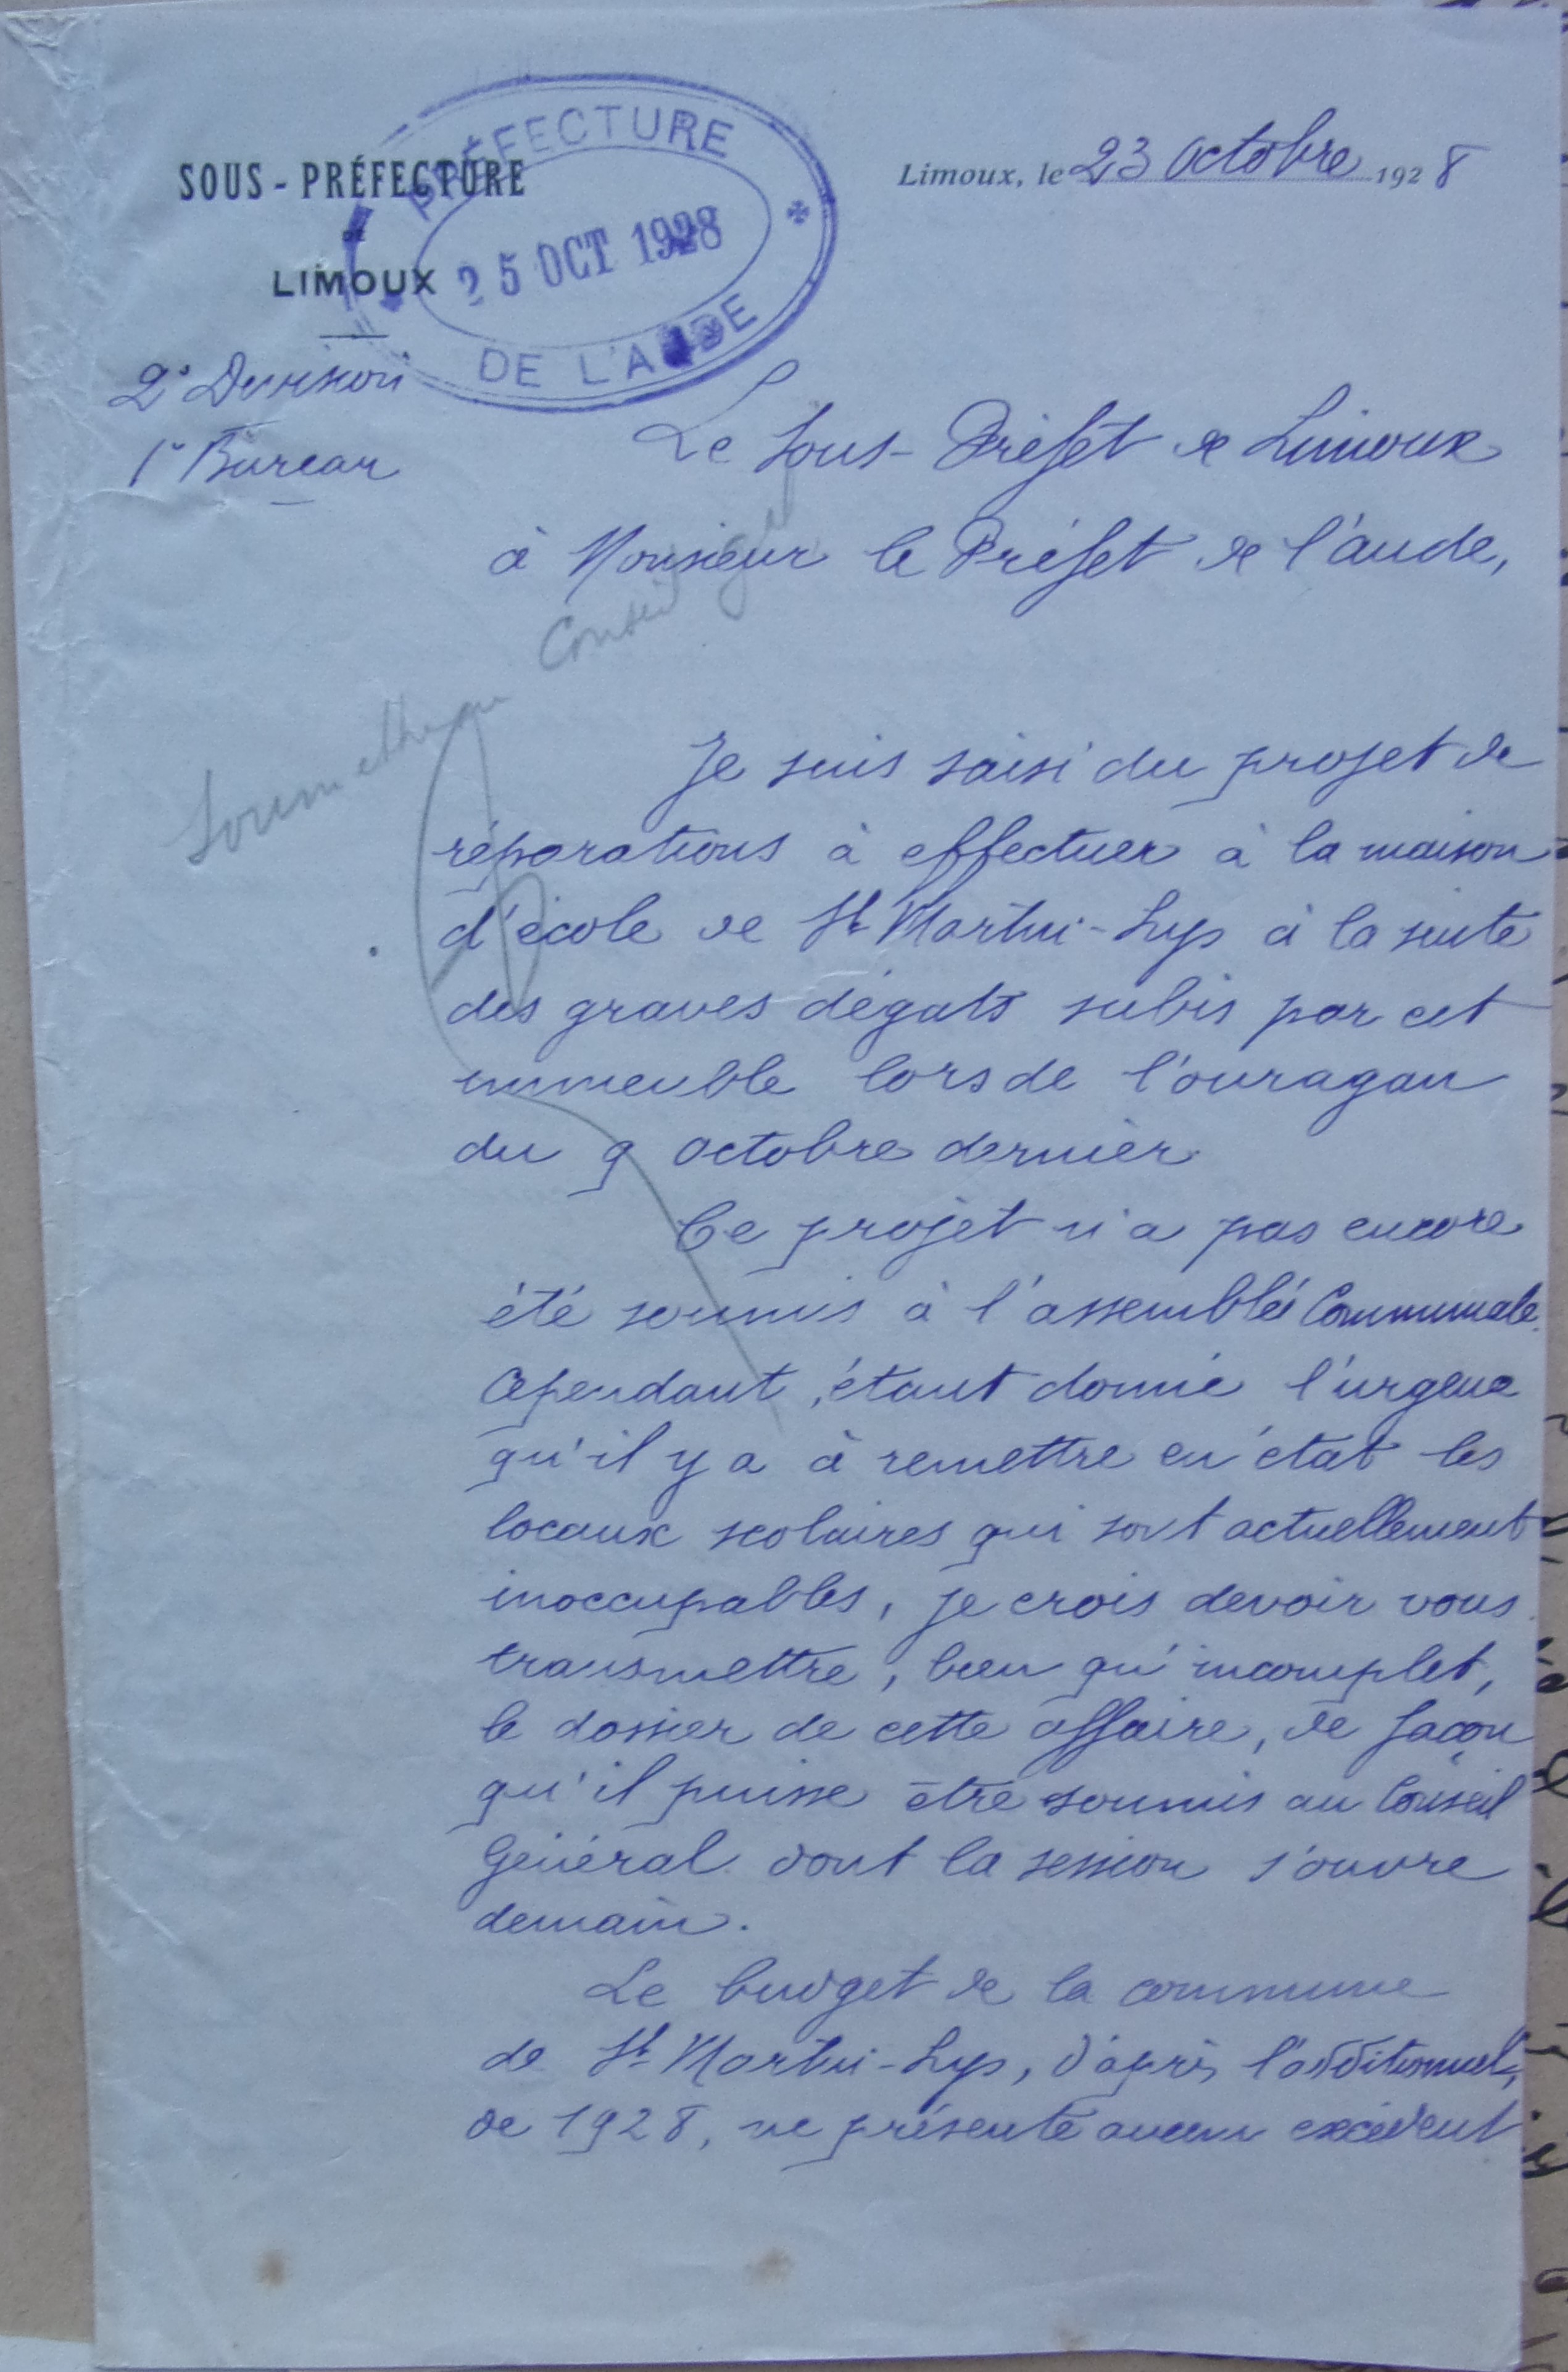 SOUS-PRÉFECTURE
DE
LIMOUX
PRÉFECTURE
25 OCT 1928
DE L'AUDE
Limoux, le 23 octobre 1928
2e Division
1er Bureau
Le Sous-Préfet de Limoux
à Monsieur le Préfet de l'Aude,
Soumettre au Conseil gal
Je suis saisi du projet de
réparations à effectuer à la maison
d'école de St Martin-Lys à la suite
des graves dégats subis par cet
immeuble lors de l'ouragan
du 9 octobre dernier.
Ce projet n'a pas encore
été soumis à l'assemblée Communale.
Cependant, étant donné l'urgence
qu'il y a à remettre en état les
locaux scolaires qui sont actuellement
inoccupables, je crois devoir vous
transmettre, bien qu'incomplet,
le dossier de cette affaire, de façon
qu'il puisse être soumis au Conseil
Général dont la session s'ouvre
demain.
Le budget de la commune
de St Martin-Lys, d'après l'additionnel,
de 1928, ne présente aucun excédent